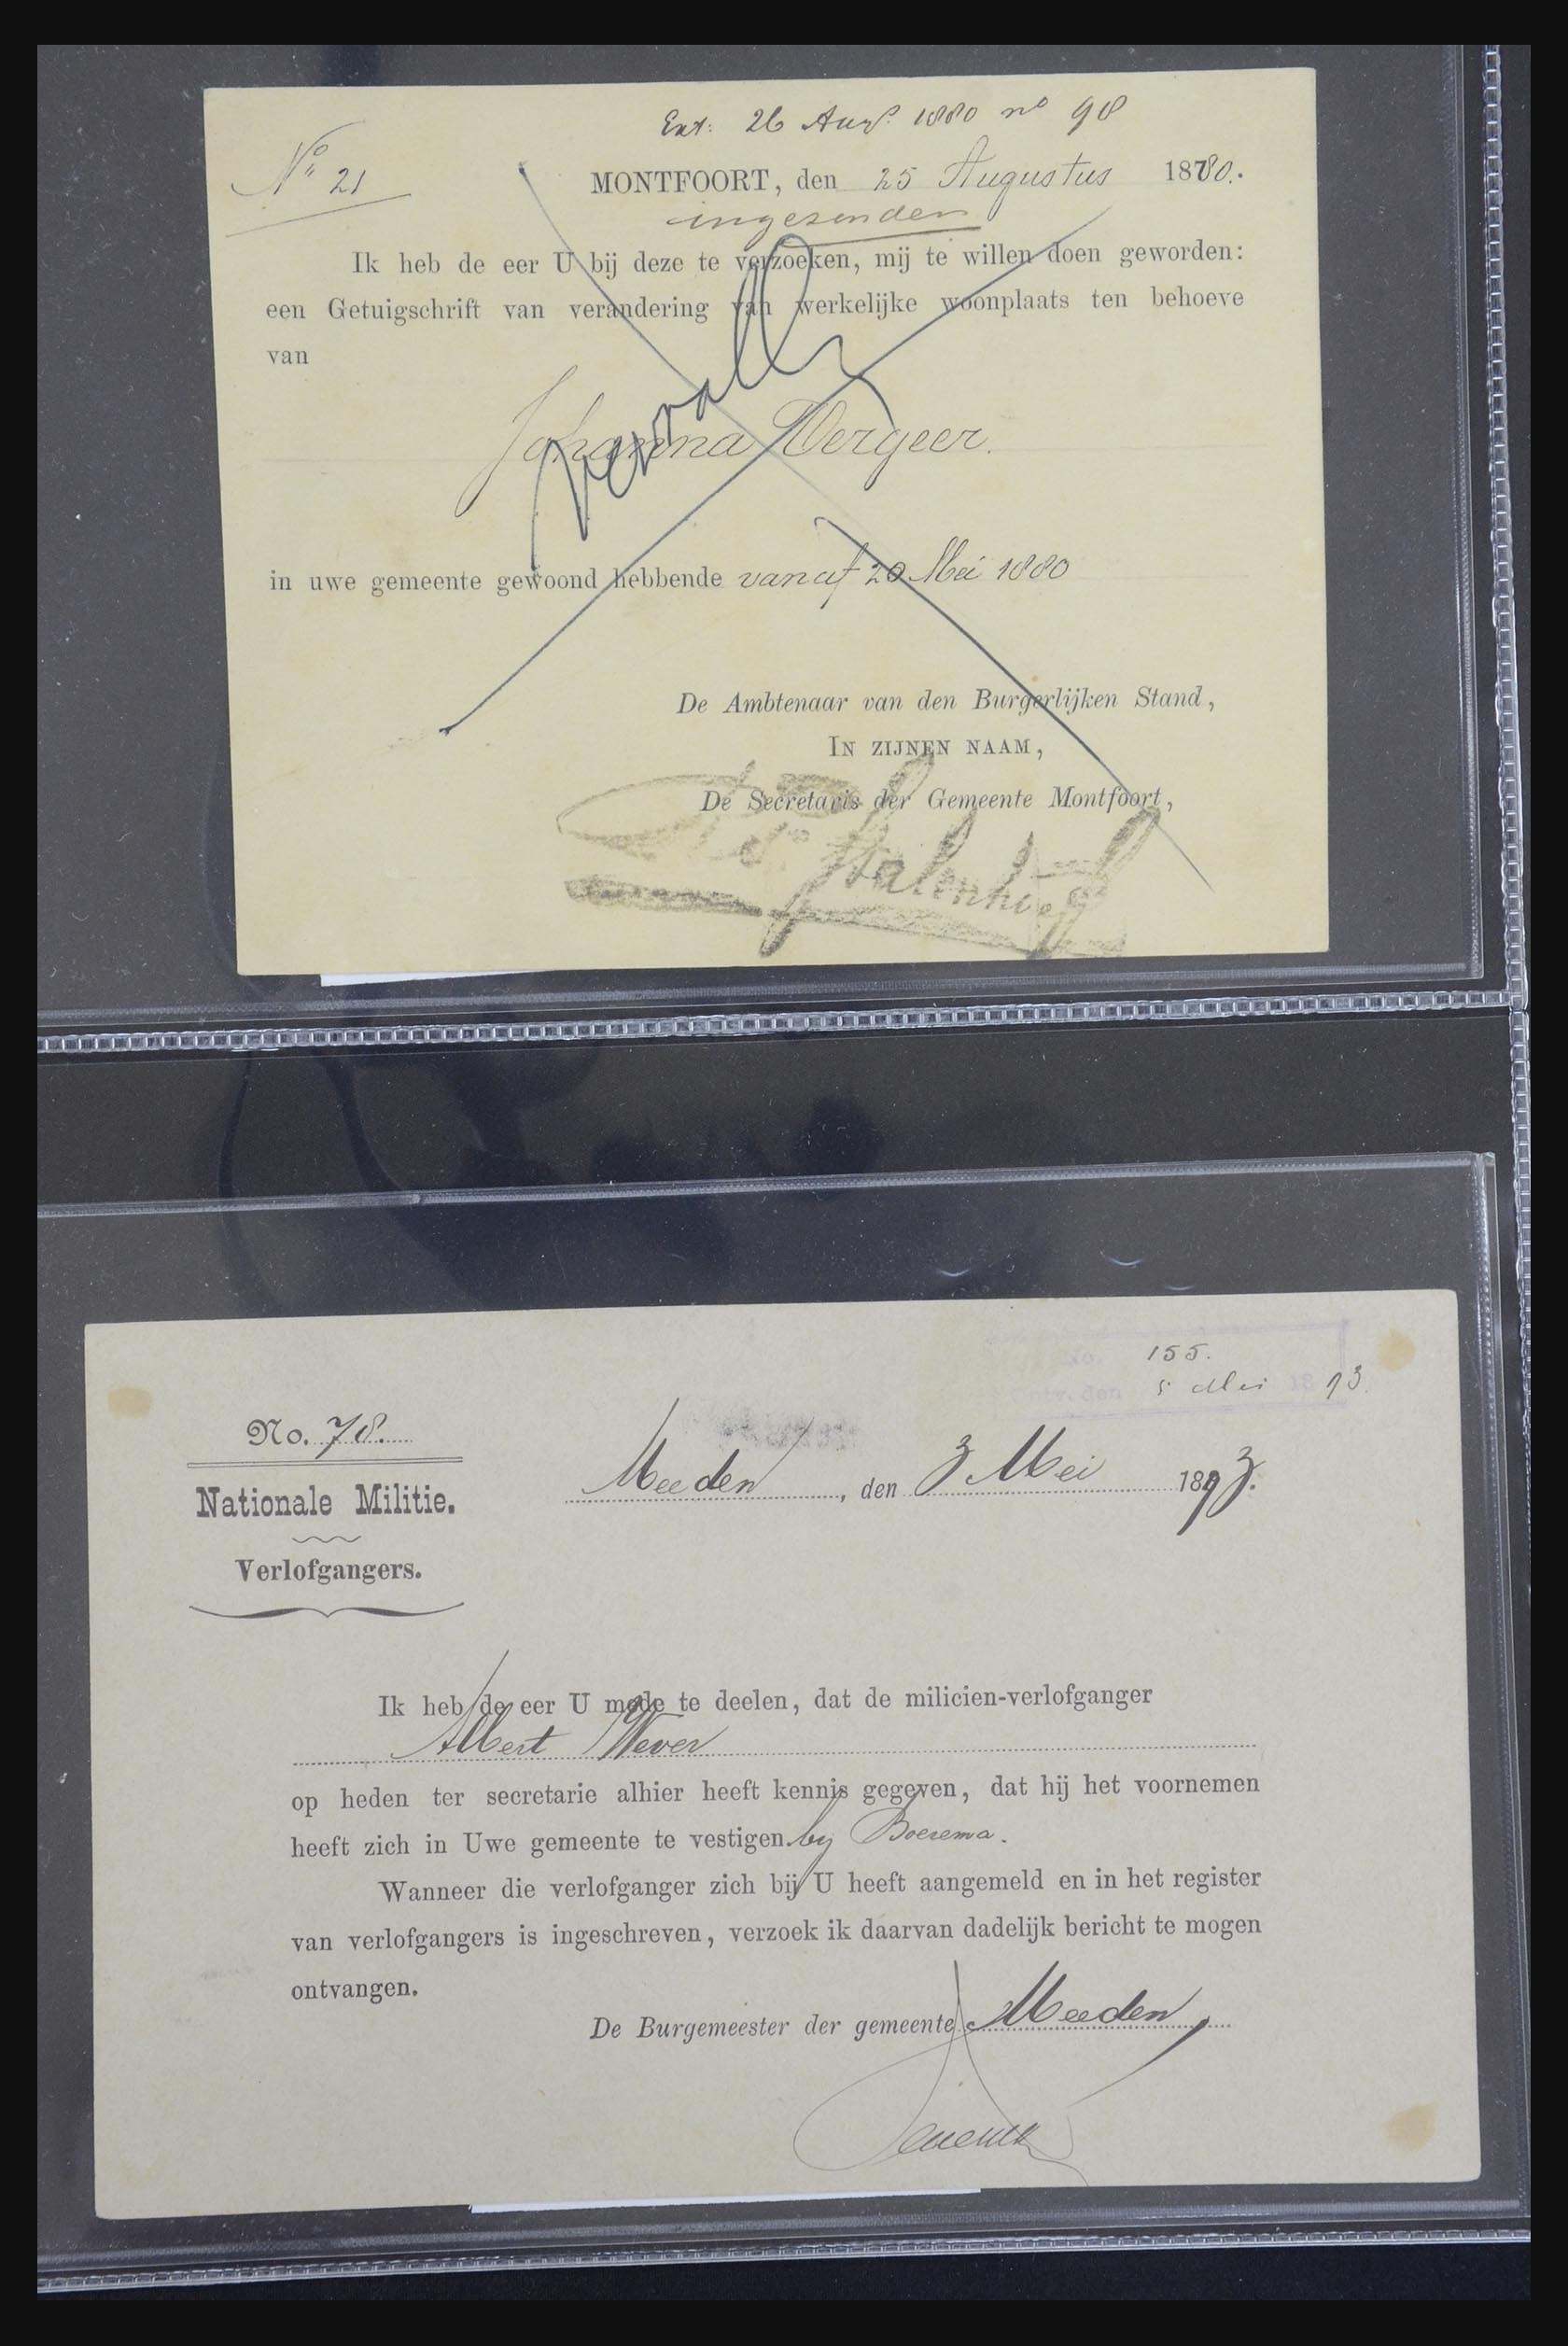 Ext: 26 Augs. 1880 no 98
No 21
MONTFOORT, den 25 Augustus 1880.
ingezonden
Ik heb de eer U bij deze te verzoeken, mij te willen doen geworden:
een Getuigschrift van verandering van werkelijke woonplaats ten behoeve
van
Johanna Vergeer.
vervalt
in uwe gemeente gewoond hebbende vanaf 20 Mei 1880
De Ambtenaar van den Burgerlijken Stand,
IN ZIJNEN NAAM,
De Secretaris der Gemeente Montfoort,
155.
5 Mei 18 93.
No. 78.
Nationale Militie.
Verlofgangers.
Meeden, den 3 Mei 1893.
Ik heb de eer U mede te deelen, dat de milicien-verlofganger
Albert Wever
op heden ter secretarie alhier heeft kennis gegeven, dat hij het voornemen
heeft zich in Uwe gemeente te vestigen by Boerema.
Wanneer die verlofganger zich bij U heeft aangemeld en in het register
van verlofgangers is ingeschreven, verzoek ik daarvan dadelijk bericht te mogen
ontvangen.
De Burgemeester der gemeente Meeden,